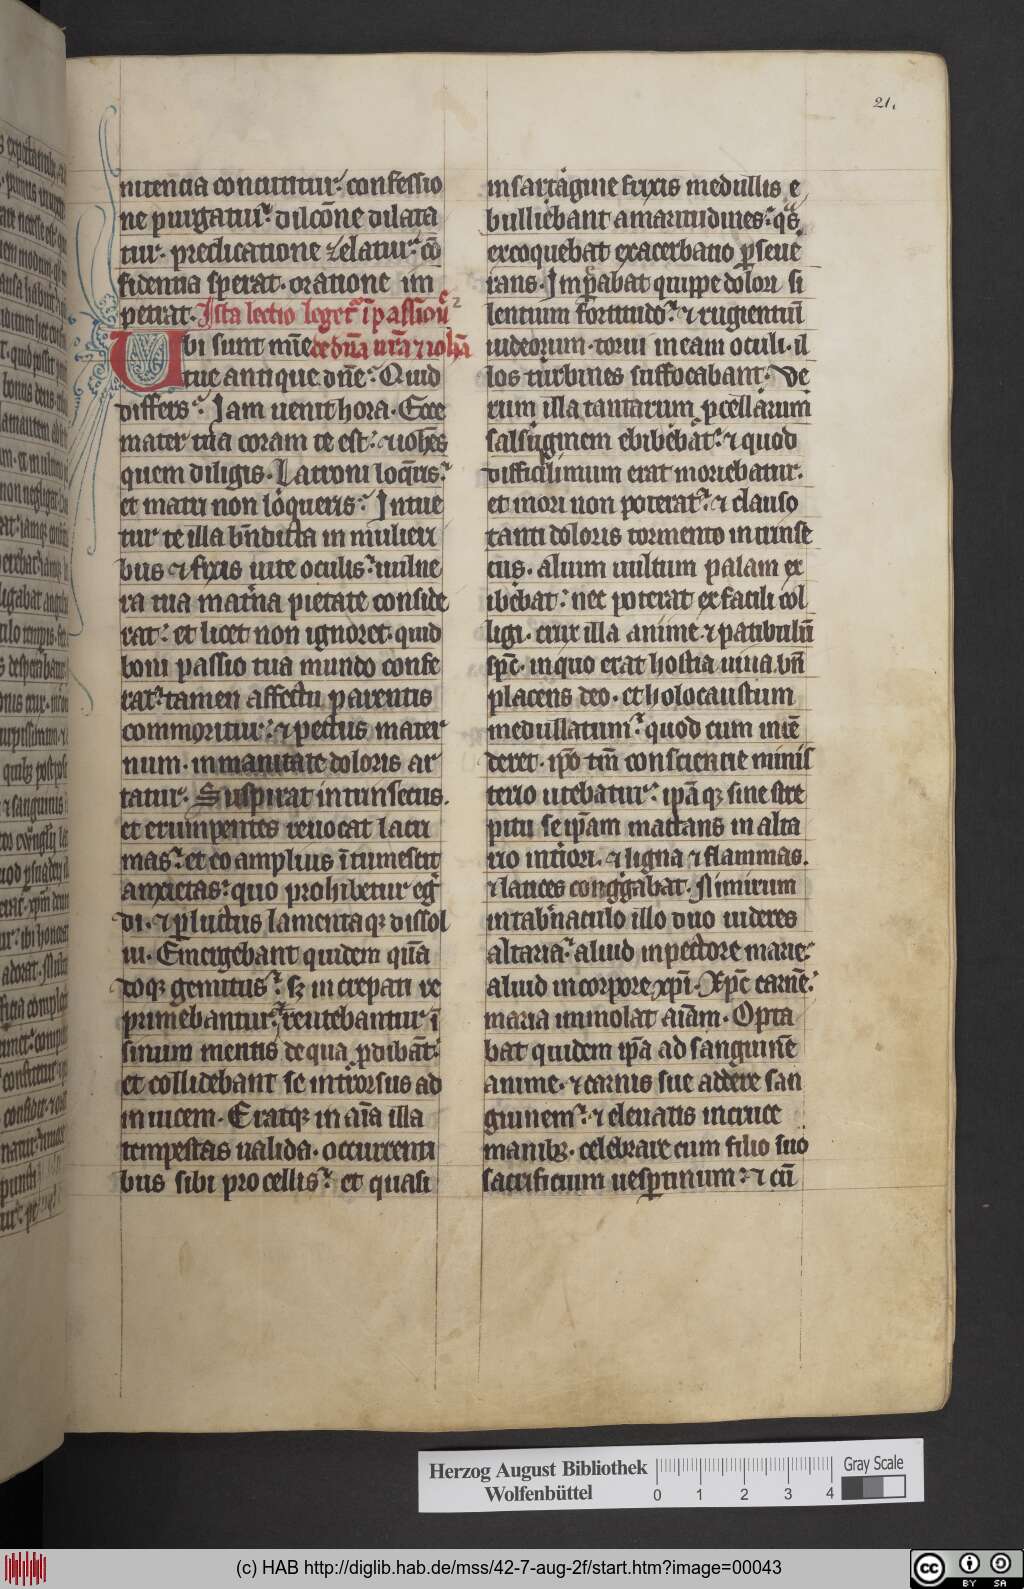 21.
nitencia concutitur. confessio
ne purgatur. dilcōne dilata
tur. predicatione zelatur. cō
fidentia sperat. oratione im
petrat. Ista lectio leget̄ ī passiōe
Ubi sunt mīe de dn̄a nr̄a ⁊ ioh̄a
tue antique dn̄e. Quid
differs. Iam uenit hora. Ecce
mater tua coram te est. ⁊ ioh̄es
quem diligis. Latroni loq̄ris.
et matri non loqueris. Intue
tur te illa bn̄dicta in mulieri
bus ⁊ fixis in te oculis. uulne
ra tua mat̄na pietate conside
rat. et licet non ignoret. quid
boni passio tua mundo confe
rat. tamen affectu parentis
commoritur. ⁊ pectus mater
num. inmanitate doloris ar
tatur. Suspirat intrinsecus.
et erumpentes reuocat lacri
mas. et eo amplius ītumescit
anxietas. quo prohibetur eg̅
di. ⁊ ꝑ luctus lamentaqꝫ dissol
ui. Emergebant quidem quā
doqꝫ gemitus. sꝫ increpati re
primebantur. ⁊ reutebantur ī
sinum mentis de qua ꝓdibāt.
et collidebant se introrsus ad
inuicem. Eratqꝫ in aīa illa
tempestas ualida. occurrenti
bus sibi procellis. et quasi
in sartagine frixis medullis e
bulliebant amaritudines. q̄s
excoquebat exacerbatio ꝑseue
rans. Imꝑabat quippe dolori si
lentium fortitudo. ⁊ rugientiū
iudeorum. torui in eam oculi. il
los turbines suffocabant. Ve
rum illa tantarum ꝓcellarum
salsuginem ebibebat. ⁊ quod
difficilimum erat moriebatur.
et mori non poterat. ⁊ clauso
tanti doloris tormento intrinse
cus. alium uultum palam ex
ibebat. nec poterat ex facili col
ligi. crux illa anime. ⁊ patibulū
spc̄. in quo erat hostia uiua bn̄
placens deo. et holocaustum
medullatum. quod cum īcē
deret. ip̄o tm̄ conscientie minis
terio utebatur. ip̄aqꝫ sine stre
pitu seip̄am mactans in alta
rio intiori. ⁊ ligna ⁊ flammas.
⁊ latices congregabat. Nimirum
in tab̄naculo illo duo uideres
altaria. aliud in pectore marie.
aliud in corpore xp̄i. Xp̄c carnē.
maria immolat aīam. Opta
bat quidem ip̄a ad sanguinē
anime. ⁊ carnis sue addere san
guinem. ⁊ eleuatis in cruce
manibꝫ. celebrare cum filio suo
sacrificium uesꝑtinum. ⁊ cū
Herzog August Bibliothek
Wolfenbüttel
0 1 2 3 4
Gray Scale
(c) HAB http://diglib.hab.de/mss/42-7-aug-2f/start.htm?image=00043
CC BY SA